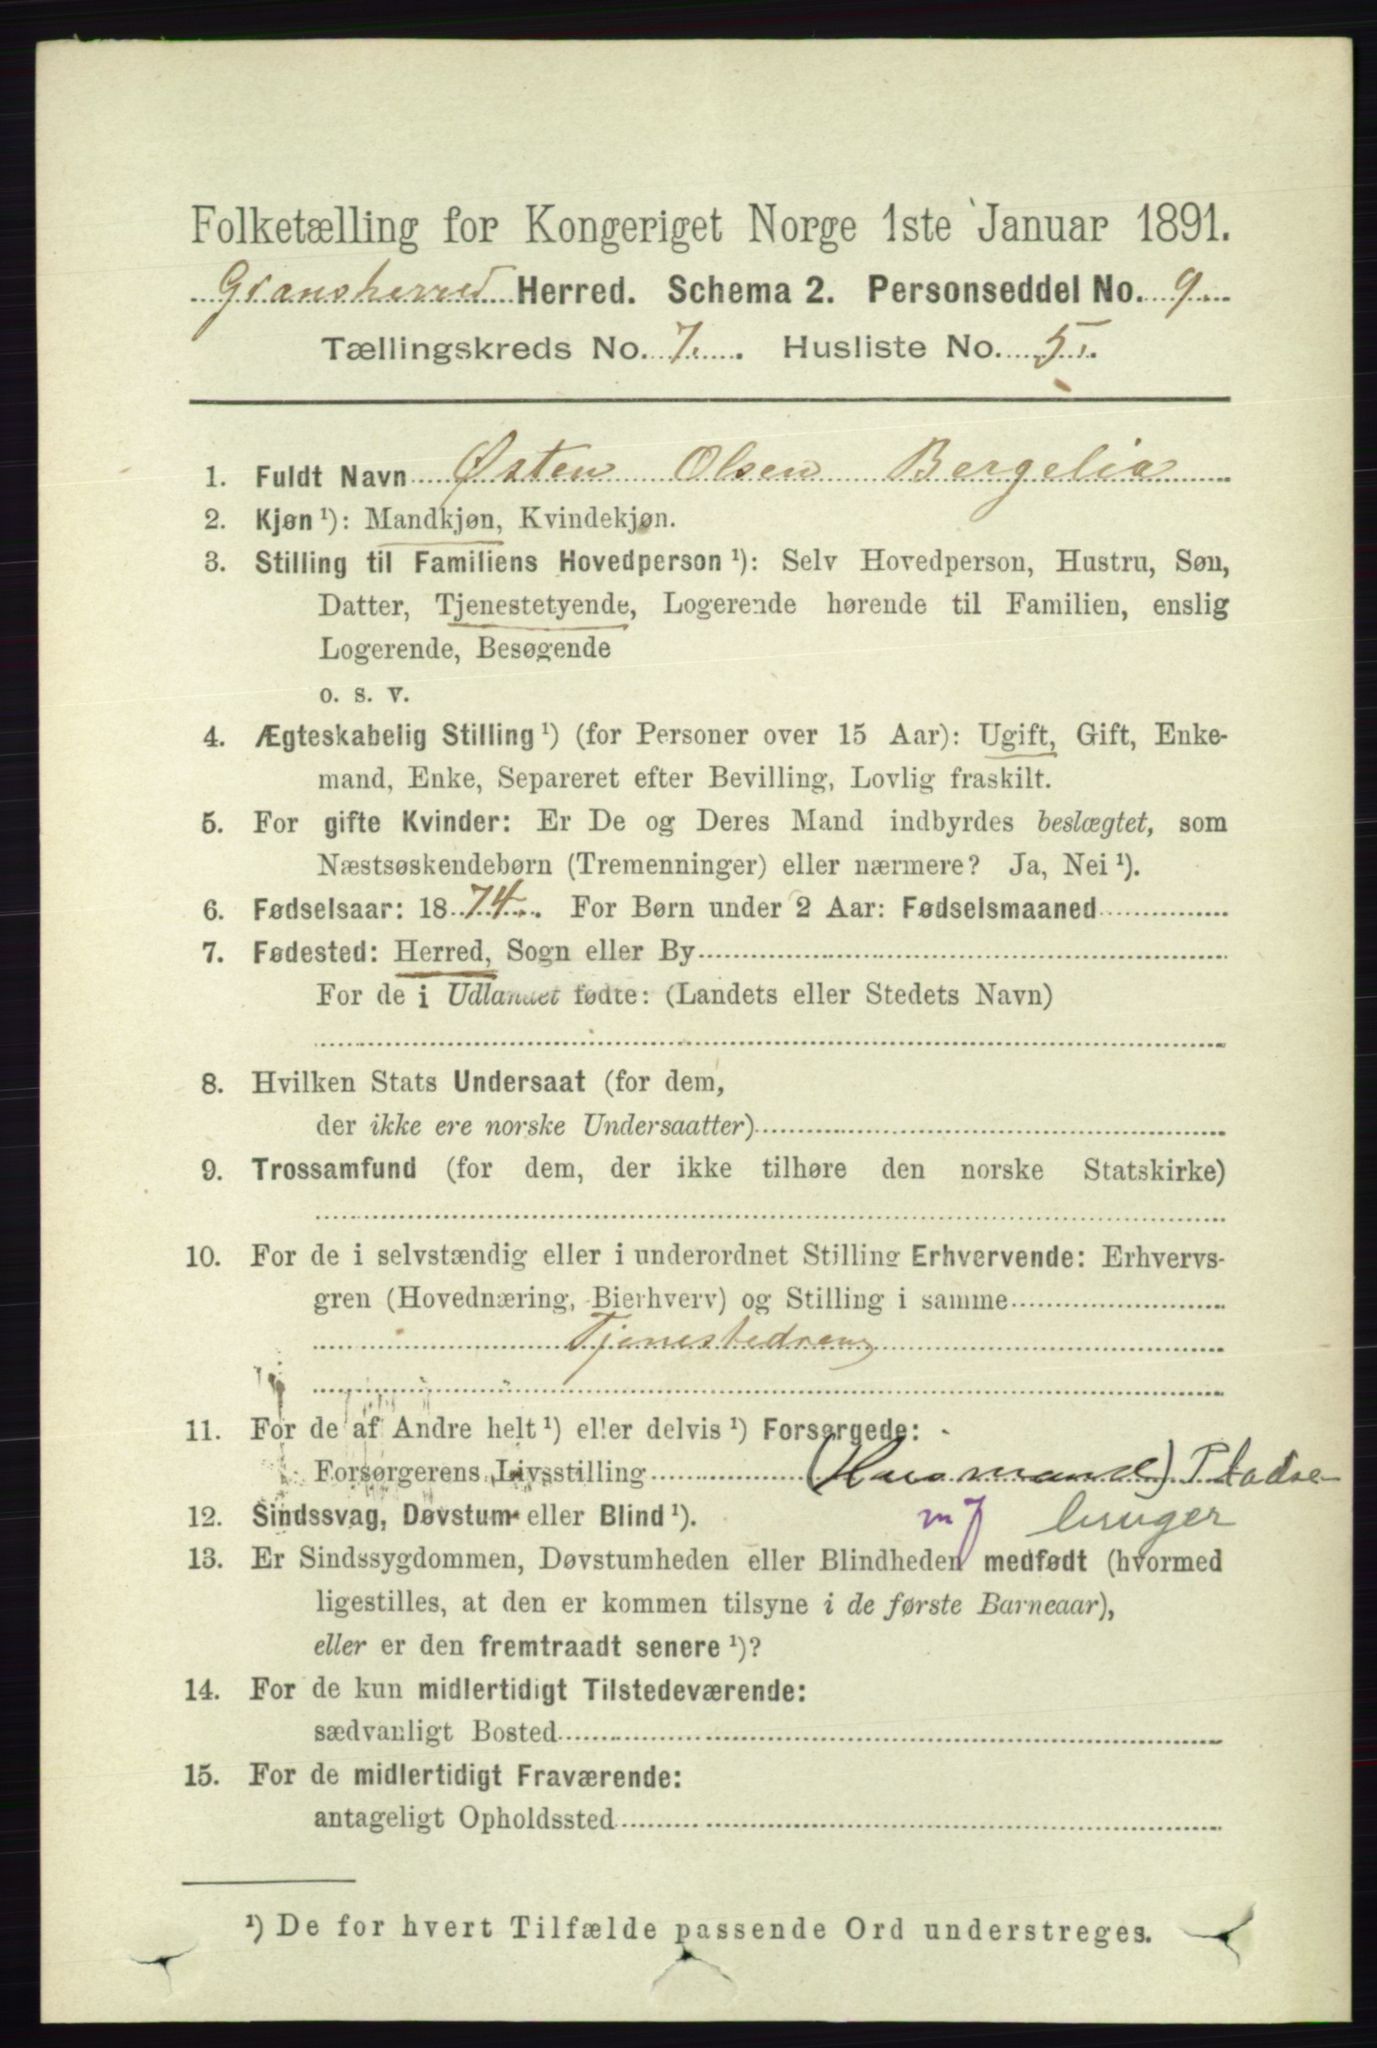 Folketælling for Kongeriget Norge 1ste Januar 1891.
Gransherred Herred. Schema 2. Personseddel No. 9
Tællingskreds No. 7. Husliste No. 5.
1. Fuldt Navn Østen Olsen Bergelia
2. Kjøn ¹): Mandkjøn, Kvindekjøn.
3. Stilling til Familiens Hovedperson ¹): Selv Hovedperson, Hustru, Søn,
Datter, Tjenestetyende, Logerende hørende til Familien, enslig
Logerende, Besøgende
o. s. v.
4. Ægteskabelig Stilling ¹) (for Personer over 15 Aar): Ugift, Gift, Enke-
mand, Enke, Separeret efter Bevilling, Lovlig fraskilt.
5. For gifte Kvinder: Er De og Deres Mand indbyrdes beslægtet, som
Næstsøskendebørn (Tremenninger) eller nærmere? Ja, Nei ¹).
6. Fødselsaar: 1874. For Børn under 2 Aar: Fødselsmaaned
7. Fødested: Herred, Sogn eller By
For de i Udlandet fødte: (Landets eller Stedets Navn)
8. Hvilken Stats Undersaat (for dem,
der ikke ere norske Undersaatter)
9. Trossamfund (for dem, der ikke tilhøre den norske Statskirke)
10. For de i selvstændig eller i underordnet Stilling Erhvervende: Erhvervs-
gren (Hovednæring, Bierhverv) og Stilling i samme
Tjenestedreng
11. For de af Andre helt ¹) eller delvis ¹) Forsørgede:
Forsørgerens Livsstilling (Husmand) Pladse-
12. Sindssvag, Døvstum eller Blind ¹). mf bruger
13. Er Sindssygdommen, Døvstumheden eller Blindheden medfødt (hvormed
ligestilles, at den er kommen tilsyne i de første Barneaar),
eller er den fremtraadt senere ¹)?
14. For de kun midlertidigt Tilstedeværende:
sædvanligt Bosted
15. For de midlertidigt Fraværende:
antageligt Opholdssted
¹) De for hvert Tilfælde passende Ord understreges.